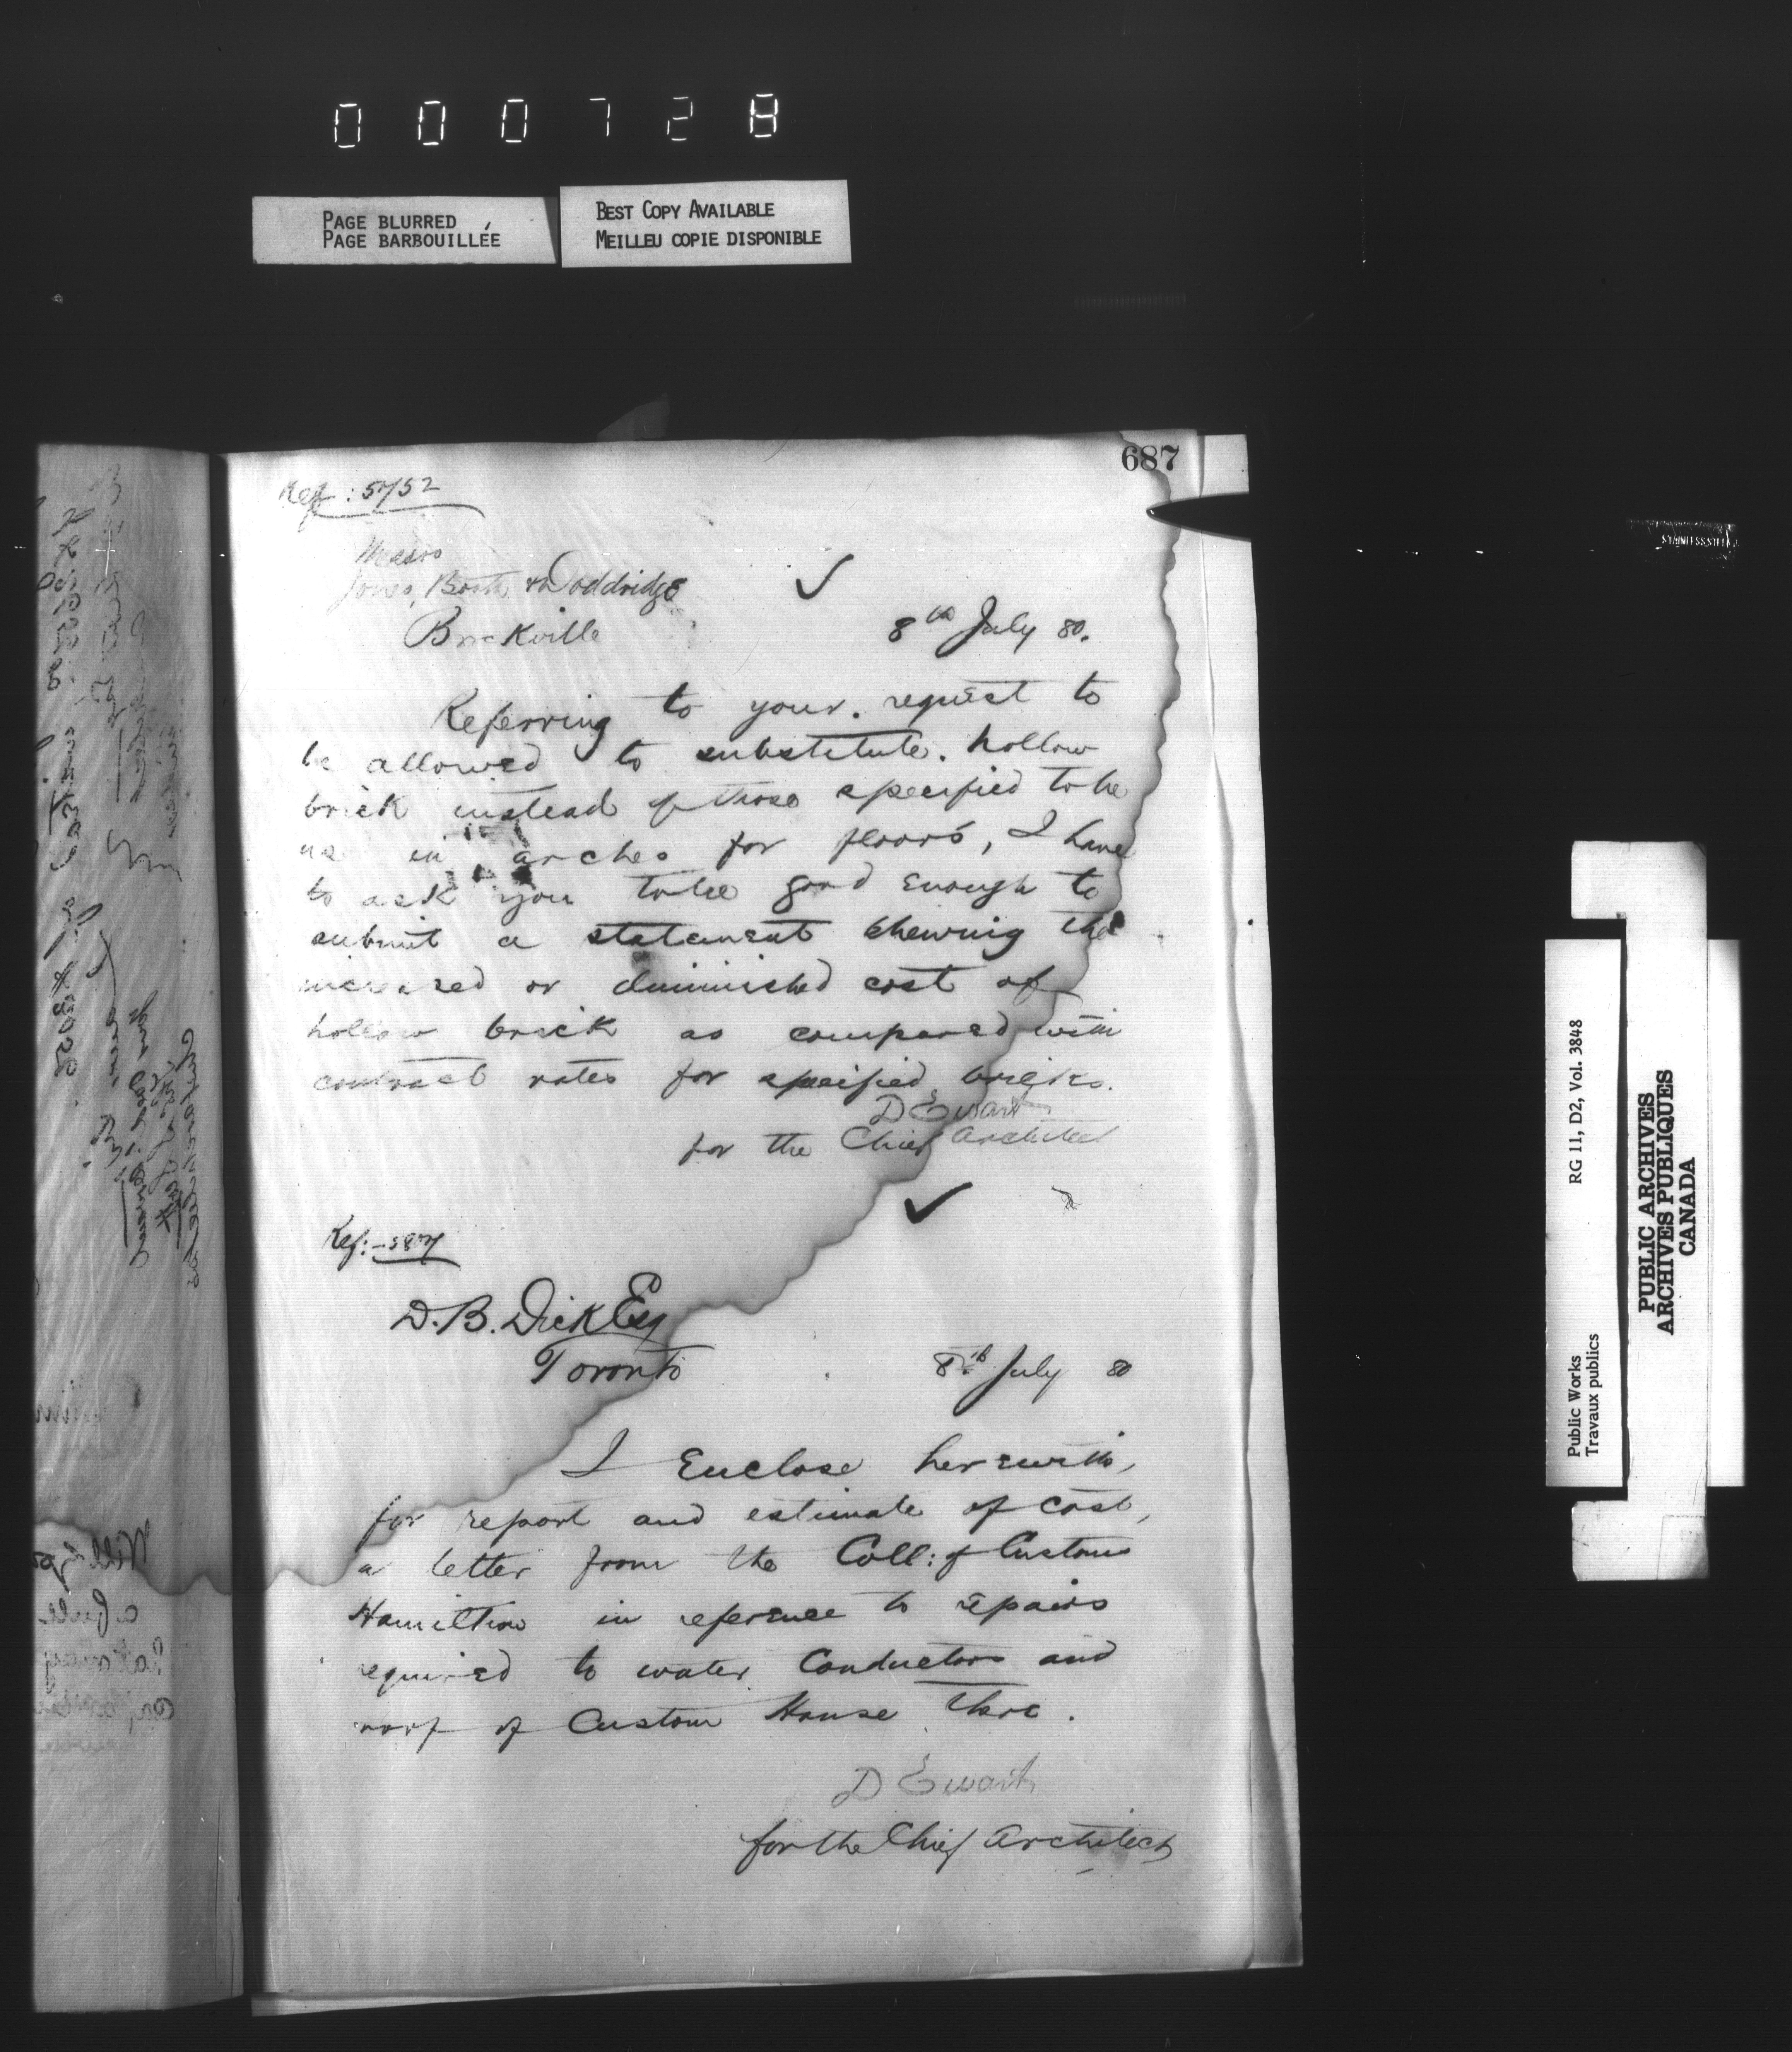 000728
PAGE BLURRED
PAGE BARBOUILLÉE
BEST COPY AVAILABLE
MEILLEU COPIE DISPONIBLE
687
Ref: 5752
Messrs
Jones, Booth & Doddridge
Brockville
8th July 80.
Referring to your request to
be allowed to substitute hollow
brick instead of those specified to be
in arches for floors, I have
to ask you to be good enough to
submit a statement shewing the
increased or diminished cost of
hollow brick as compared with
contract rates for specified bricks.
D Ewart
for the Chief Architect
Ref:
D. B. Dick Esq
Toronto
8th July 80
I Enclose herewith,
for report and estimate of cost,
a letter from the Coll: of Customs
Hamilton in reference to repairs
required to water Conductors and
roof of Custom House there.
D Ewart
for the Chief Architect
STAINLESS STEEL
RG 11, D2, Vol. 3848
Public Works
Travaux publics
PUBLIC ARCHIVES
ARCHIVES PUBLIQUES
CANADA